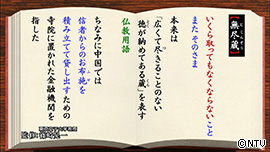 【無尽蔵】
いくら取ってもなくならないこと
またそのさま
本来は
「広くて尽きることのない
徳が納めてある蔵」を表す
仏教用語
ちなみに中国では
信者からのお布施を
積み立てて貸し出すための
寺院に置かれた金融機関を
指した
©NTV